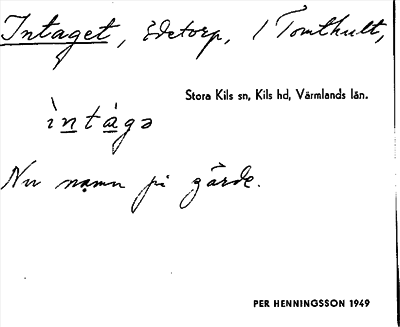 Intaget, ödetorp, / Tomthult,
Stora Kils sn, Kils hd, Värmlands län.
ìntàgə
Nu namn på gärde.
PER HENNINGSSON 1949